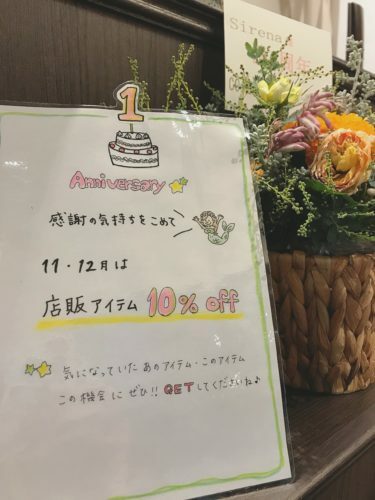 Sirena
周年
1
Anniversary
感謝の気持ちをこめて
11・12月は
店販アイテム 10% off
気になっていた あのアイテム・このアイテム
この機会に ぜひ!! GETしてくださいね♪